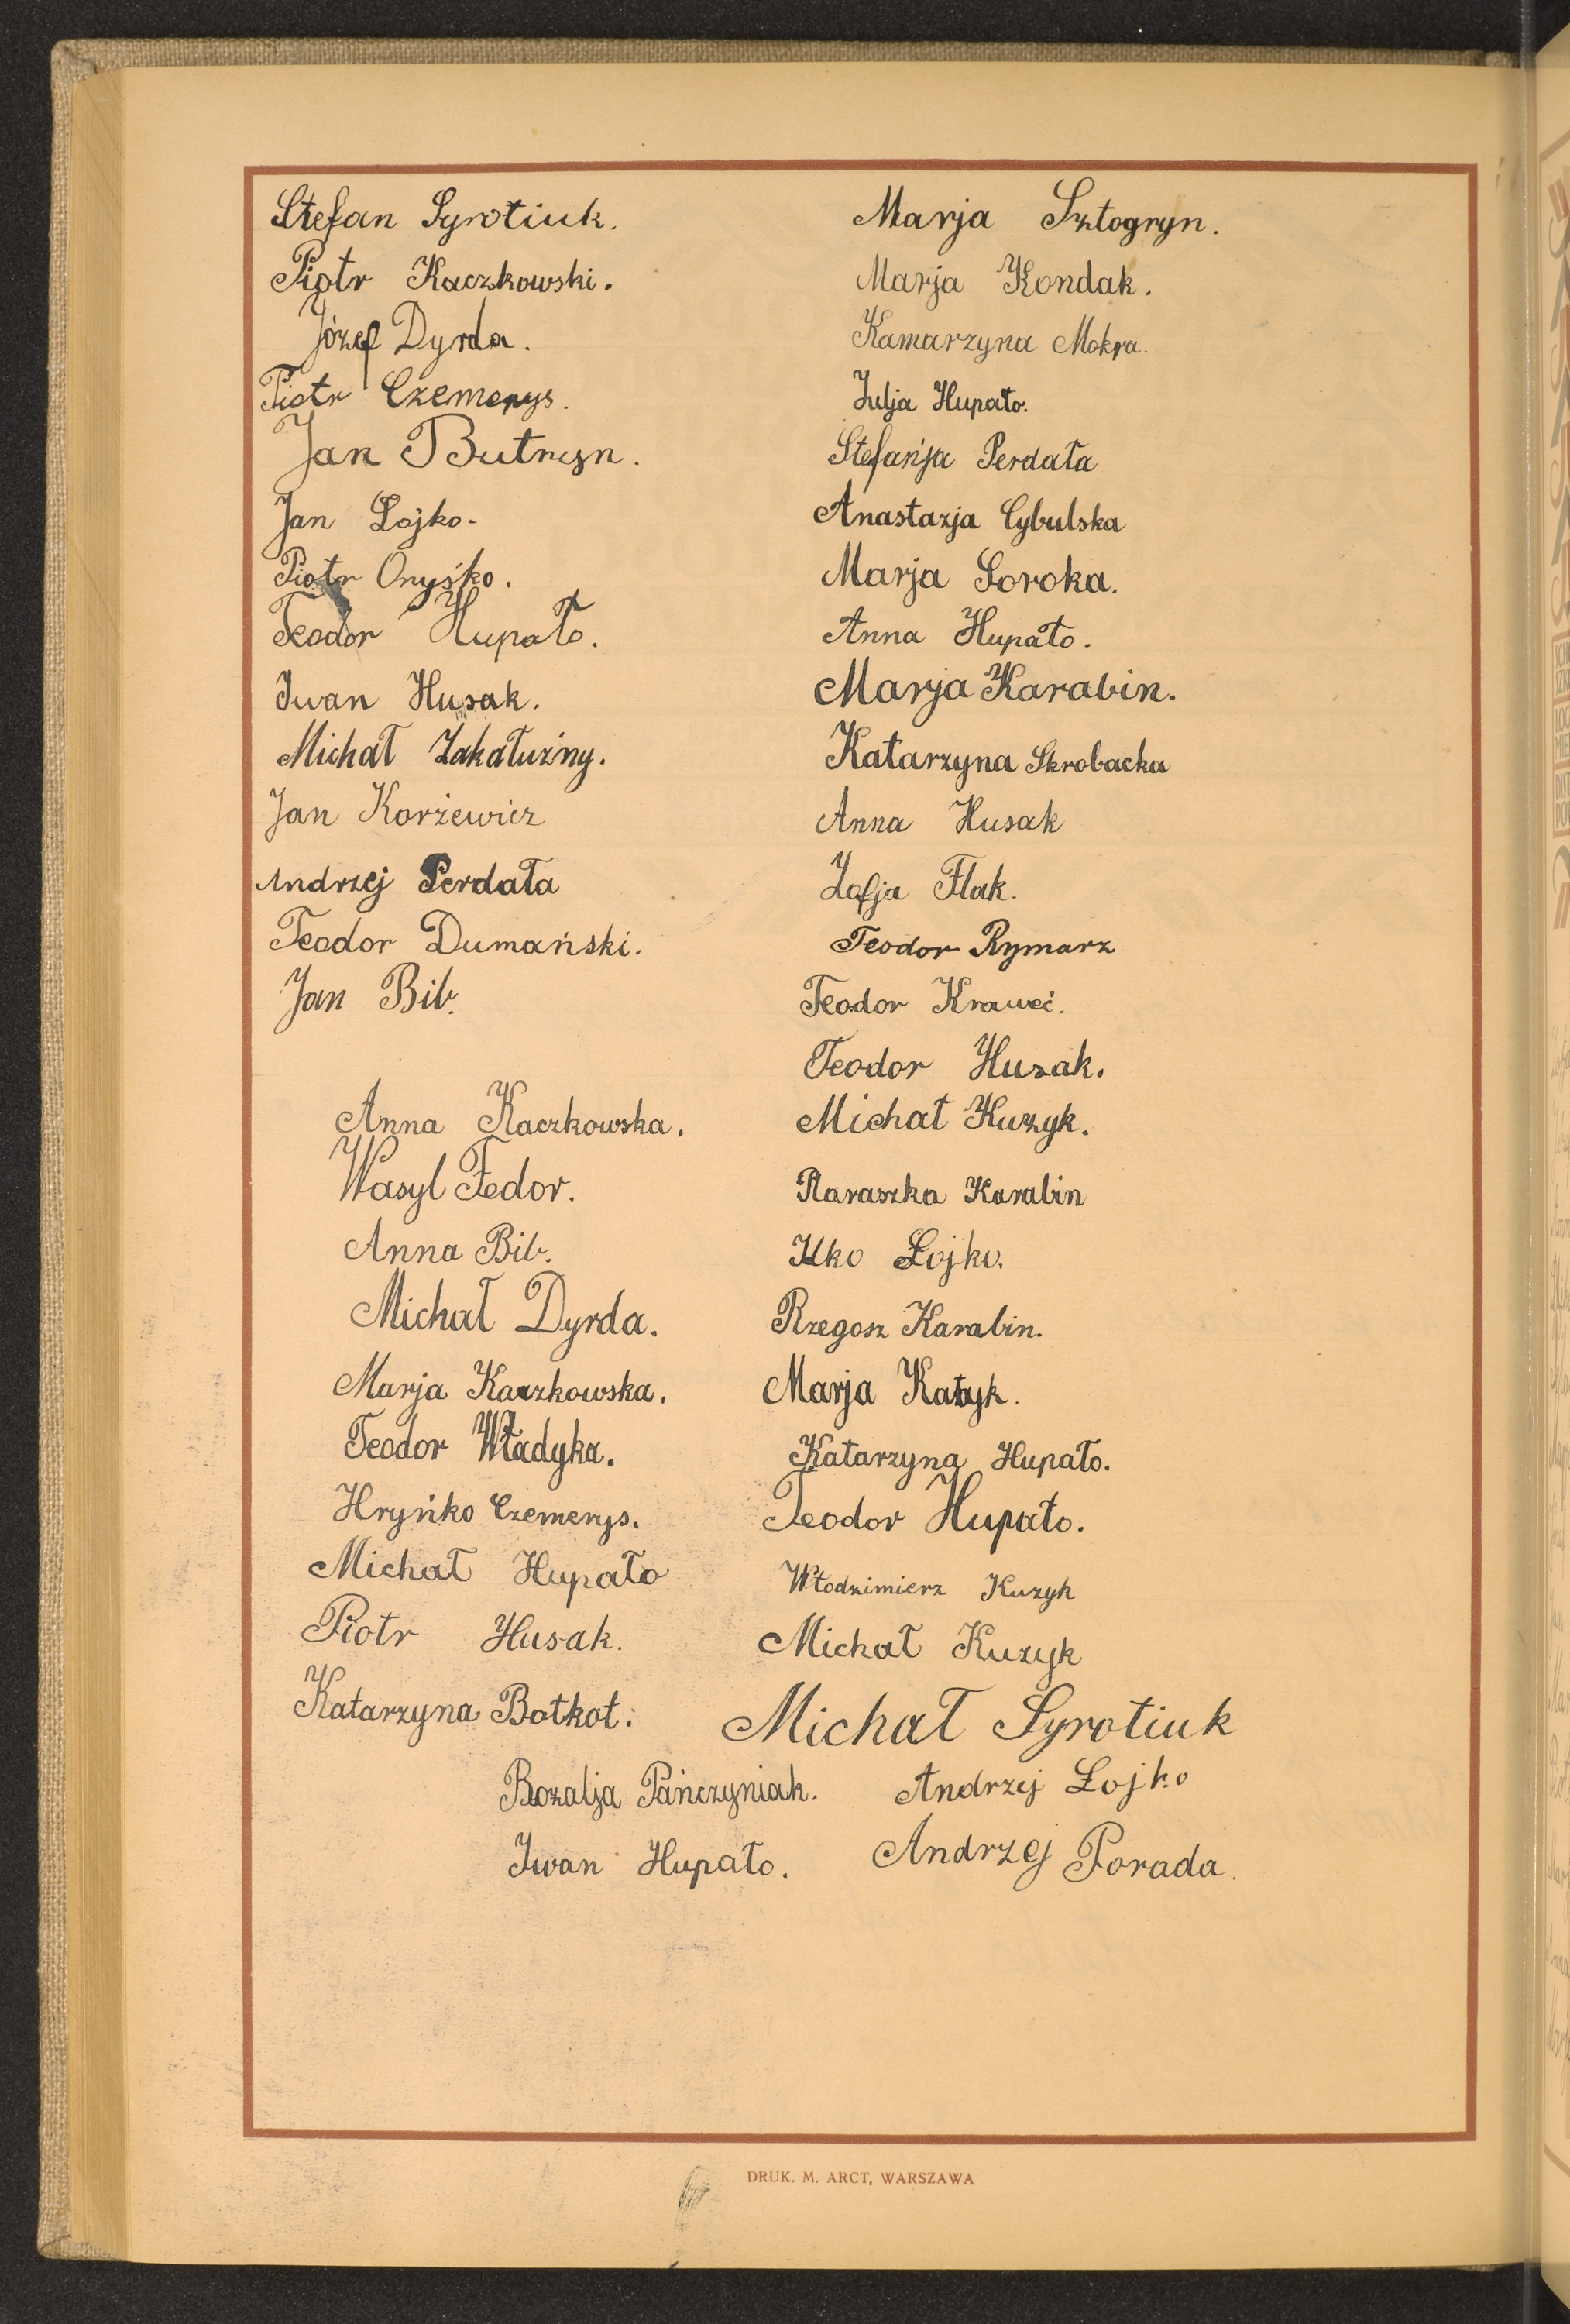 Stefan Syrotiuk.
Piotr Kaczkowski.
Józef Dyrda.
Piotr Czemerys.
Jan Butryn.
Jan Łojko.
Piotr Onyśko.
Teodor Hupało.
Iwan Husak.
Michał Zakałużny.
Jan Korżewicz
Andrzej Perdała
Teodor Dumański.
Jan Bib.
Anna Kaczkowska.
Wasyl Fedor.
Anna Bib.
Michał Dyrda.
Marja Kaczkowska.
Teodor Władyka.
Hryńko Czemerys.
Michał Hupało
Piotr Husak.
Katarzyna Botkot.
Rozalja Pańczyniak.
Iwan Hupało.
Marja Sztogryn.
Marja Kondak.
Kamarzyna Mokra.
Julja Hupało.
Stefańja Perdała
Anastazja Cybulska
Marja Soroka.
Anna Hupało.
Marja Karabin.
Katarzyna Skrobacka
Anna Husak
Zofja Flak.
Teodor Rymarz
Teodor Kraweć.
Teodor Husak.
Michał Kuzyk.
Paraszka Karabin
Ilko Łojko.
Rzegosz Karabin.
Marja
Katarzyna Hupało.
Teodor Hupało.
Włodzimierz Kuzyk
Michał Kuzyk
Michał Syrotiuk
Andrzej Łojko
Andrzej Porada.
DRUK. M. ARCT, WARSZAWA